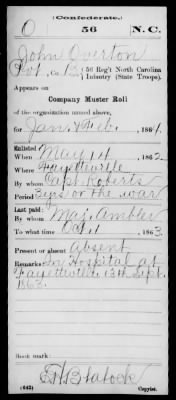 (Confederate.)
O 56 N.C.
John Overton
Pvt., Co. , 56 Reg't North Carolina
Infantry (State Troops).
Appears on
Company Muster Roll
of the organization named above,
for Jan & Feb., 1864.
Enlisted:
When May 14, 1862.
Where Fayetteville
By whom Capt. Roberts
Period 3 yrs or the war
Last paid:
By whom Maj. Ambler
To what time Oct 1, 1863.
Present or absent Absent
Remarks: In Hospital at
Fayetteville 13th Sept.
1863.
Book mark:
Blalock
(642) Copyist.